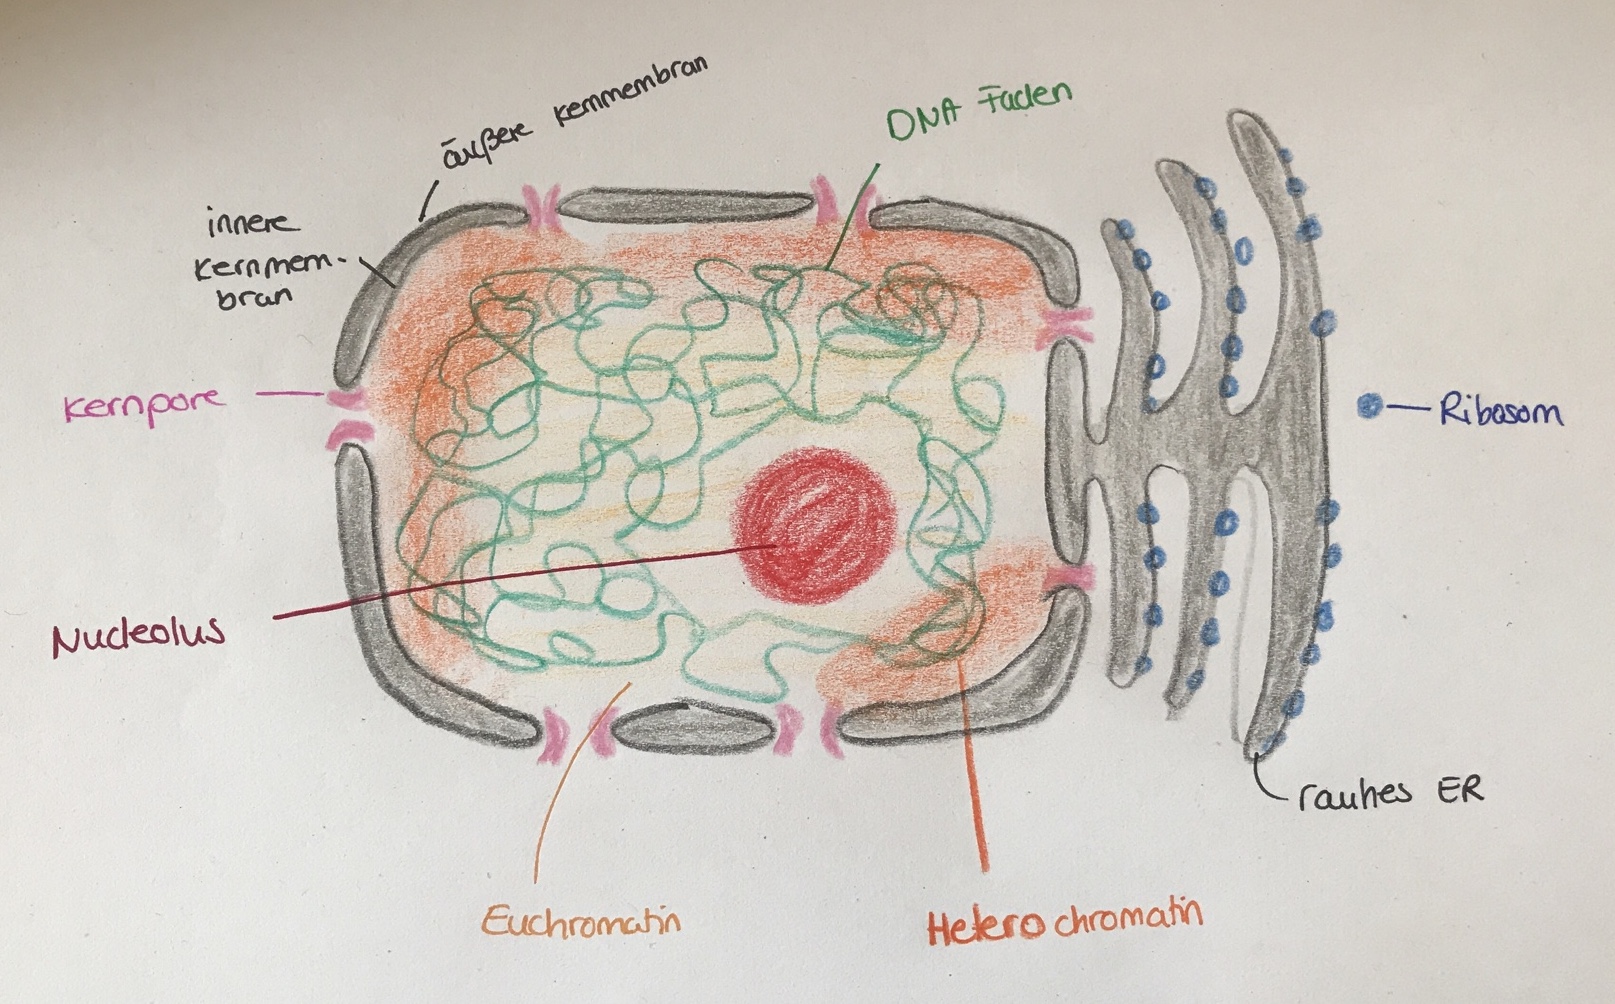 äußere Kernmembran
DNA Faden
innere
Kernmem-
bran
Kernpore
Ribosom
Nucleolus
rauhes ER
Euchromatin
Heterochromatin